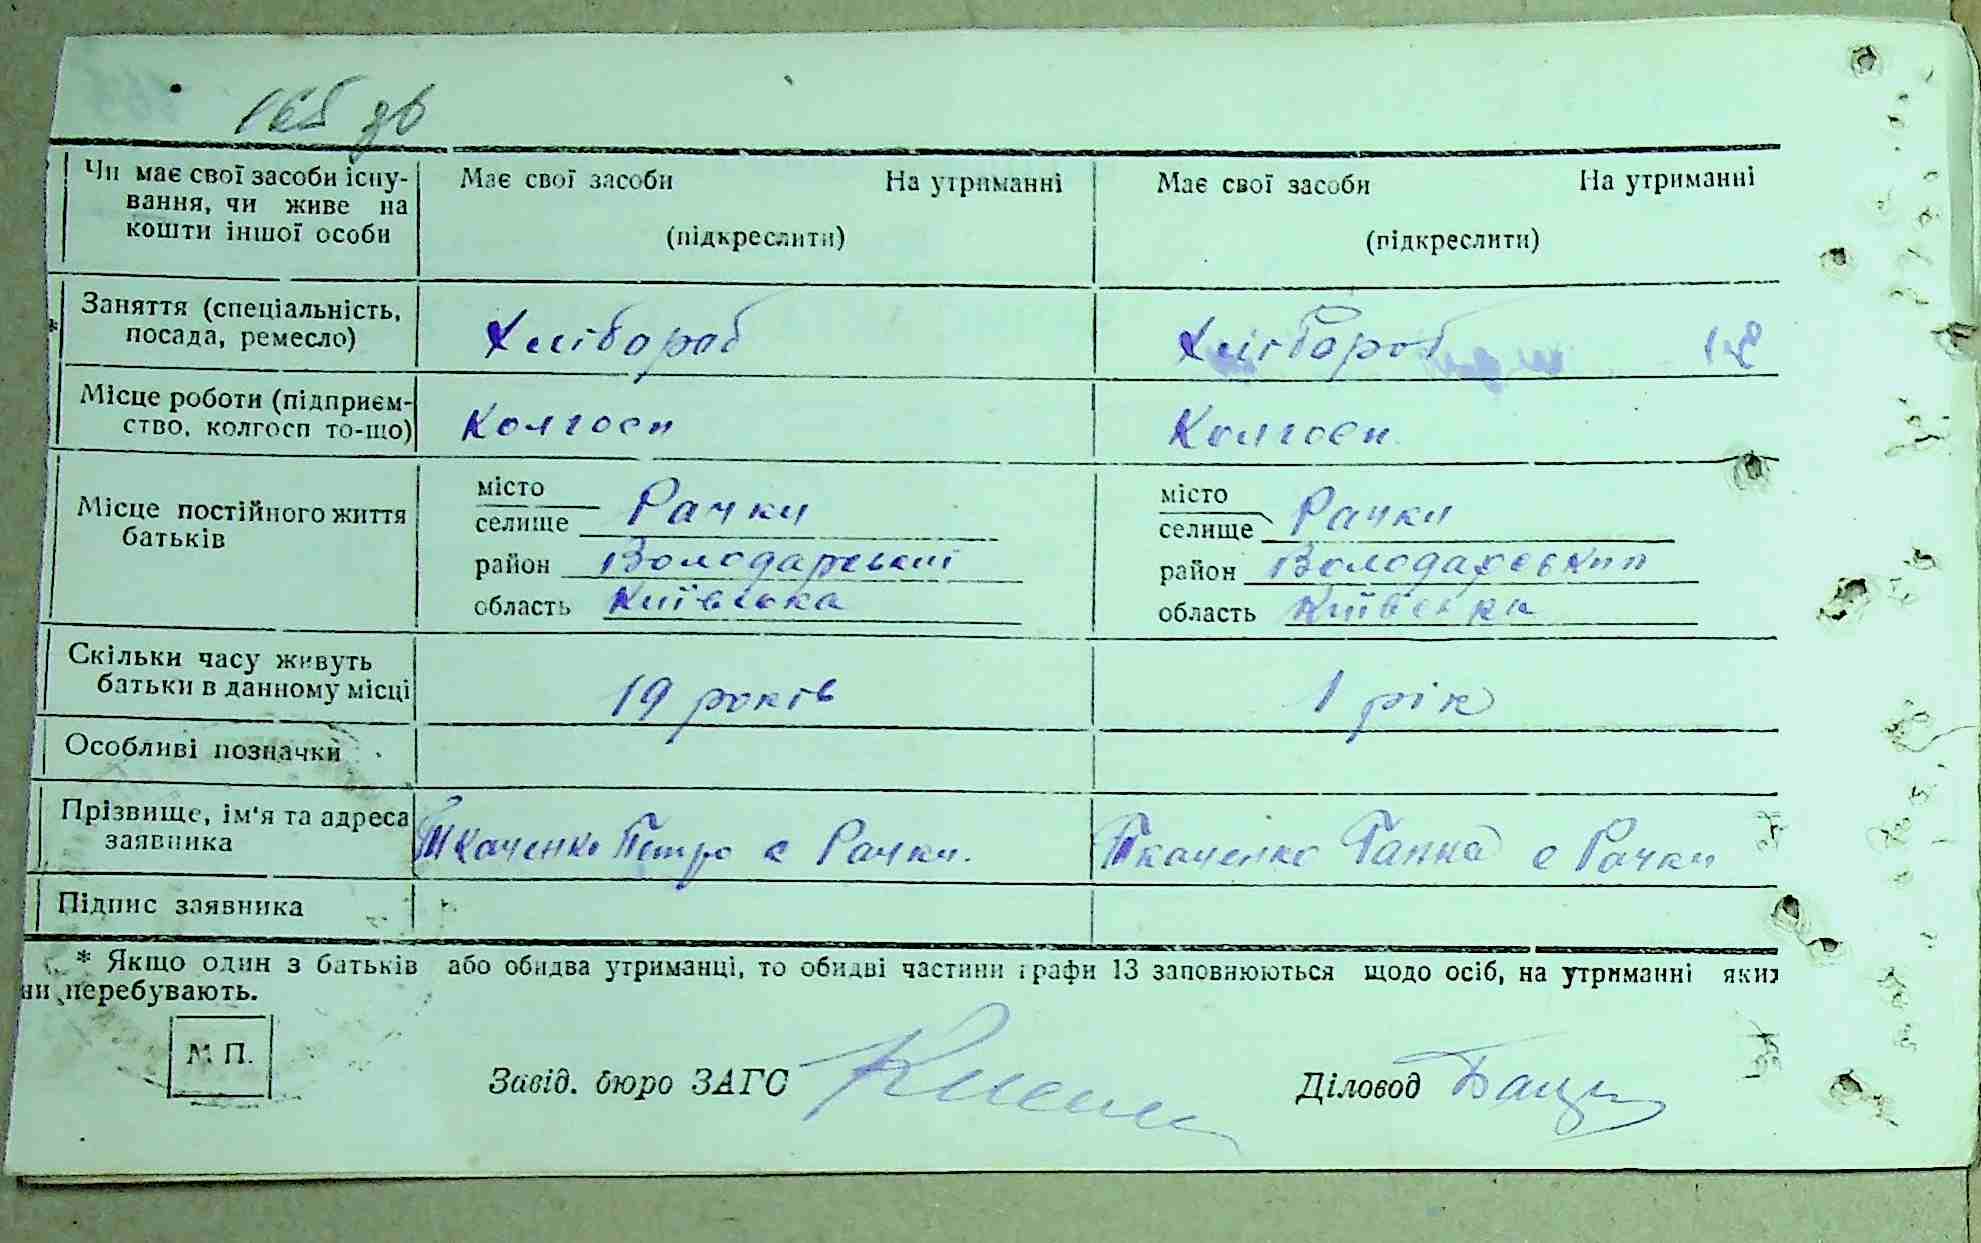 165 зв
Чи має свої засоби існу- Має свої засоби На утриманні Має свої засоби На утриманні
вання, чи живе на
кошти іншої особи (підкреслити) (підкреслити)
* Заняття (спеціальність,
посада, ремесло) Хлібороб Хлібороб
Місце роботи (підприєм-
ство, колгосп то-що) Колгосп Колгосп
Місце постійного життя
батьків
місто
селище Рачки
район Володарський
область Київська
місто
селище Рачки
район Володарський
область Київська
Скільки часу живуть
батьки в данному місці 19 років 1 рік
Особливі позначки
Прізвище, ім'я та адреса
заявника Ткаченко Петро с Рачки. Ткаченко Ганна с Рачки
Підпис заявника
* Якщо один з батьків або обидва утриманці, то обидві частини графи 13 заповнюються щодо осіб, на утриманні яких
ни перебувають.
М. П.
Завід. бюро ЗАГС Діловод